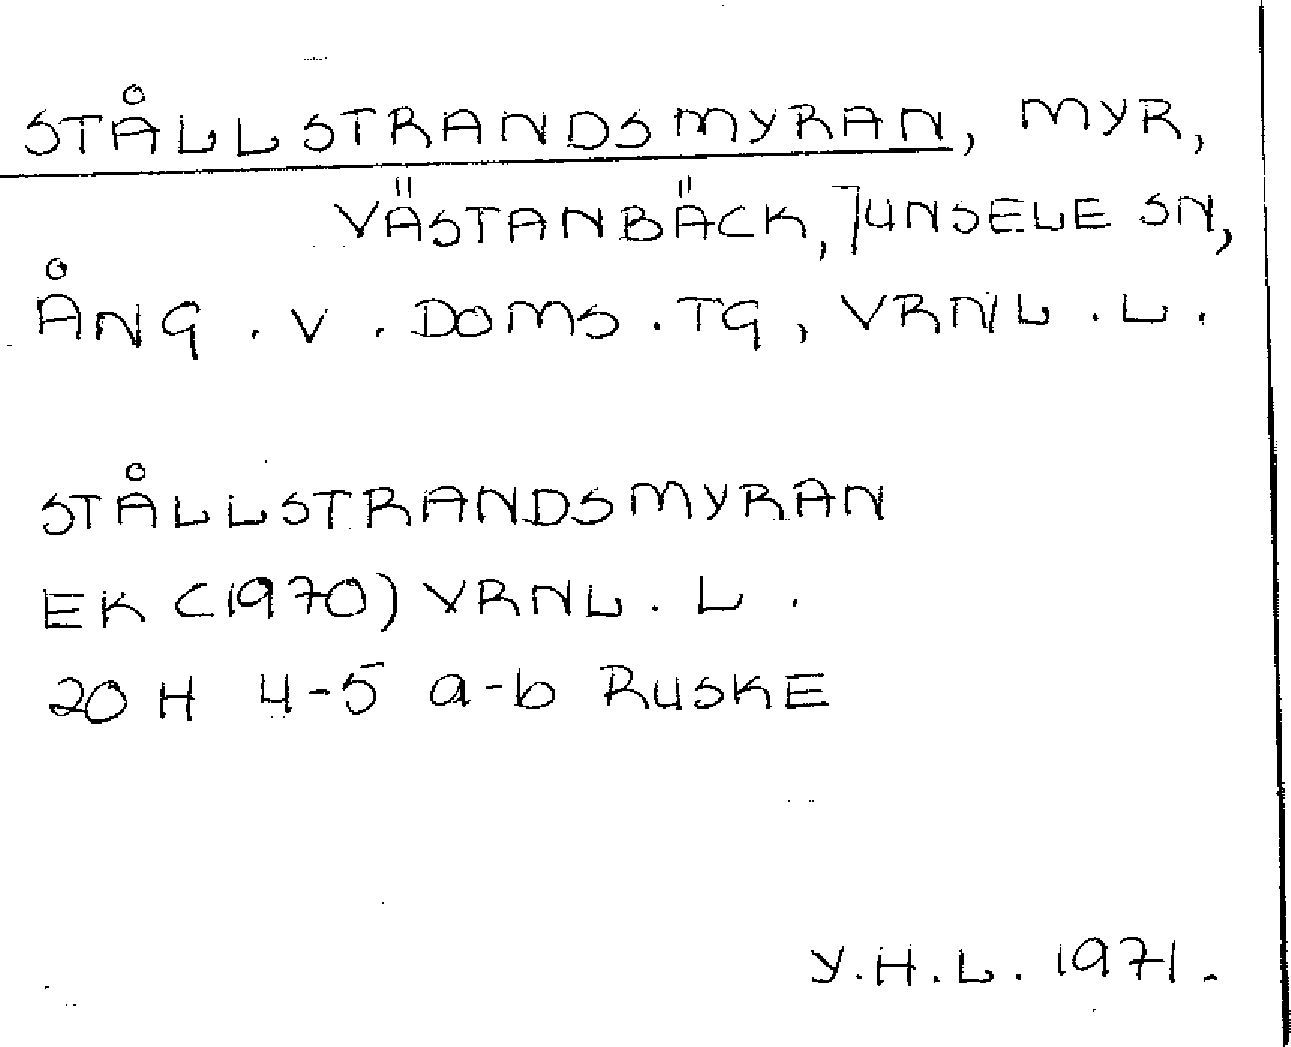 STÅLLSTRANDSMYRAN, MYR,
VÄSTANBÄCK, JUNSELE SN,
ÅNG. V. DOMS. TG, VRNL. L.
STÅLLSTRANDSMYRAN
EK (1970) VRNL. L.
20 H 4-5 a-b RUSKE
Y.H.L. 1971.